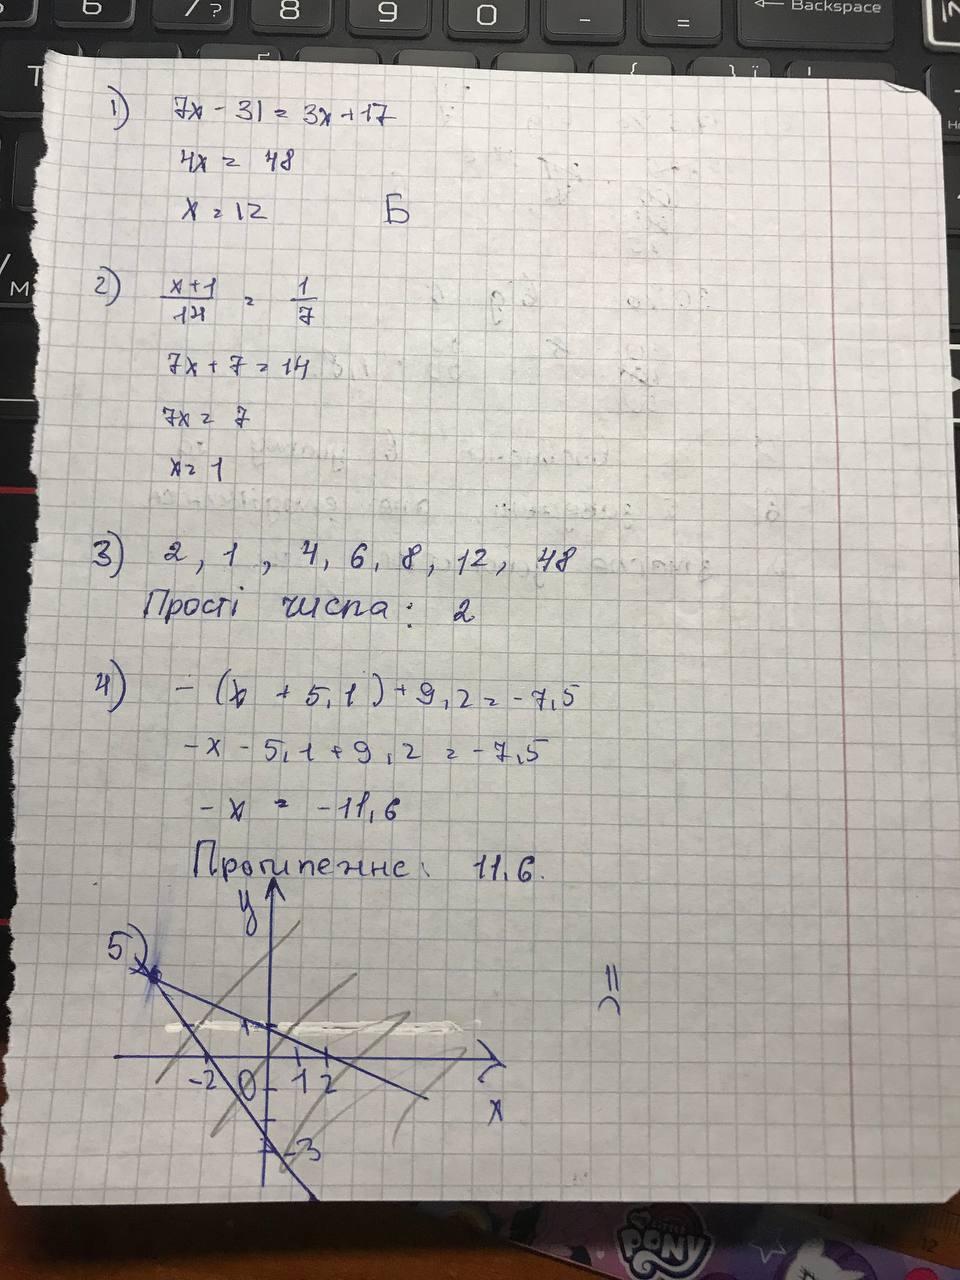 7 ?
8
9
0
-
=
← Backspace
1) 7x - 31 = 3x + 17
4x = 48
x = 12 Б
2) x+1/14 = 1/7
7x + 7 = 14
7x = 7
x = 1
3) 2, 1, 4, 6, 8, 12, 48
Прості числа: 2
4) - (x + 5,1) + 9,2 = -7,5
-x - 5,1 + 9,2 = -7,5
-x = -11,6
Протилежне: 11,6.
5) y
1
-2 0 1 2
x
-3
PONY
12